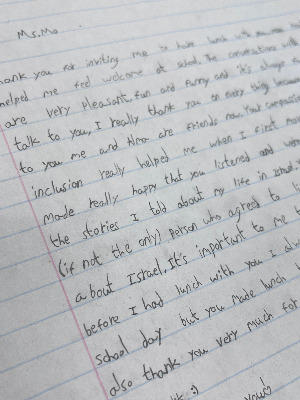 Ms. Mo
hank you for inviting me to have lunch with
helped me feel welcome at school. The conversations with
are very pleasant, fun and funny and it's always
talk to you, I really thank you on every thing because
to you me and are friends now. Your compassion
inclusion really helped me when I first mov
made really happy that you listened and
the stories I told about my life in
(if not the only) person who agreed to
about Israel. It's important to me
before I had lunch with you I
school day but you made lunch
also thank you very much for
:)
you!